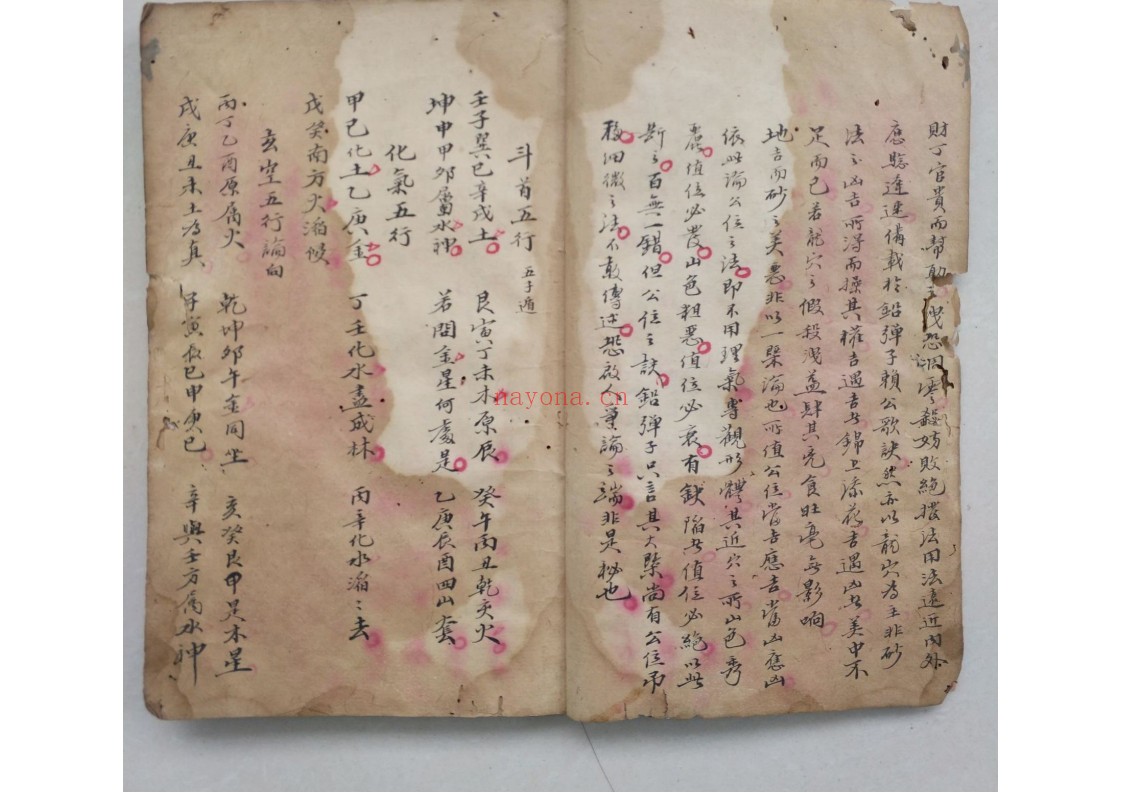 財丁官貴而幫動之曳恐妨敗絕撥法用法遠近內外
應驗遠速備載於鉛彈子賴公歌訣然亦以龍穴為主非砂
法之凶吉所得而操其權吉遇吉如錦上添花吉遇凶如美中不
足而已若龍穴之假殺洩並肆其死食旺毫無影响
地吉而砂之美惡非以一槩論也所值公位當吉應吉當凶應凶
依此論公位之法即不用理氣專觀形體其近穴之所山色秀
麗值位必發山色粗惡值位必衰有缺陷者值位必絕以此
斷之百無一錯但公位之訣鉛彈子只言其大槩尚有公位吊
移細微之法不敢傳述恐啟人彙論之端非是秘也
斗首五行 五子遁
壬子巽巳辛戌土 艮寅丁未木原辰 癸午丙丑乾亥火
坤申甲卯屬水神 若問金星何處是 乙庚辰酉四山套
化氣五行
甲己化土乙庚金 丁壬化木盡成林 丙辛化水滔〻去
戊癸南方火滔候
玄空五行論向
丙丁乙酉原屬火 乾坤卯午金同坐 亥癸艮甲是木星
戌庚丑未土為真 子寅辰巳申庚巳 辛與壬方屬水神
nayona.cn